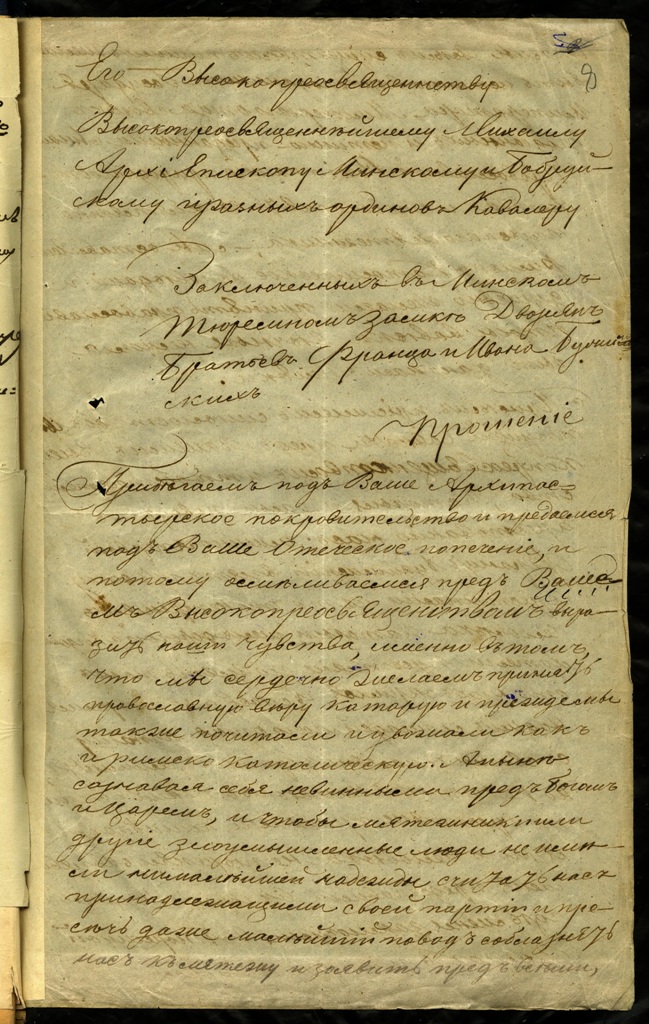 8
Его Высокопреосвященству
Высокопреосвященнѣйшему Михаилу
Архіепископу Минскому и Бобруй-
скому и разныхъ ординовъ Кавалеру
Заключенныхъ въ Минскомъ
тюремномъ замкѣ Дворянъ
Братьевъ Франца и Ивана
скихъ
Прошеніе
Прибѣгаемъ подъ Ваше Архипас-
тырское покровительство и предаемся
подъ Ваше Отеческое попеченіе, и
потому осмѣливаемся предъ Ваше-
мъ Высокопреосвященствомъ выра-
зить наши чувства, именно въ томъ,
что мы сердечно желаемъ принять
православную вѣру каторую и прежде мы
также почитали и уважали какъ
и римско католическую. А нынѣ
сознавая себя невинными предъ Богомъ
и Царемъ, и чтобы мятежники или
другіе злоумышленные люди не имѣ-
ли ни малѣйшей надежды считать насъ
принадлежащими своей партіи и пре-
сечь даже малѣйшій поводъ соблазнять
насъ къ мятежу и заявить предъ всѣми,